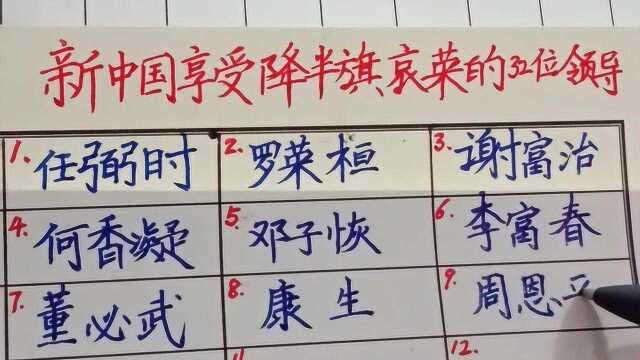 新中国享受降半旗哀荣的32位领导
1. 任弼时 2. 罗荣桓 3. 谢富治
4. 何香凝 5. 邓子恢 6. 李富春
7. 董必武 8. 康生 9. 周恩
12.